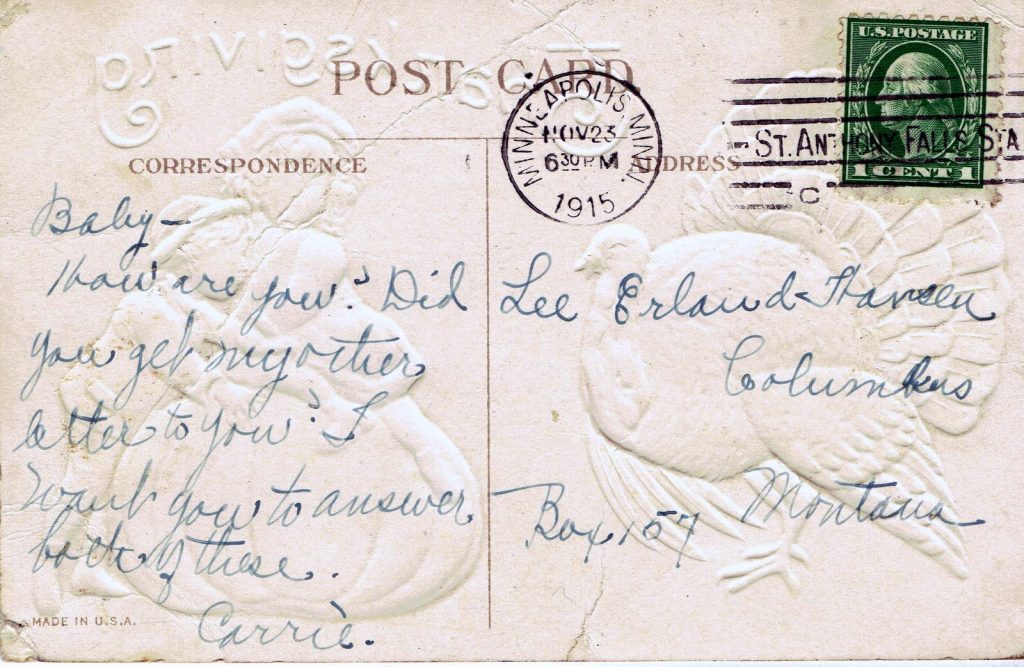 POST CARD
MINNEAPOLIS, MINN.
NOV 23
6 30 P M
1915
U.S. POSTAGE
1 CENT 1
ST. ANTHONY FALLS STA
C
CORRESPONDENCE
ADDRESS
Baby—
How are you? Did
you get my other
letter to you? I
want you to answer
both of these.
Carrie.
Lee Erland Hansen
Columbus
Montana
Box 157
MADE IN U.S.A.